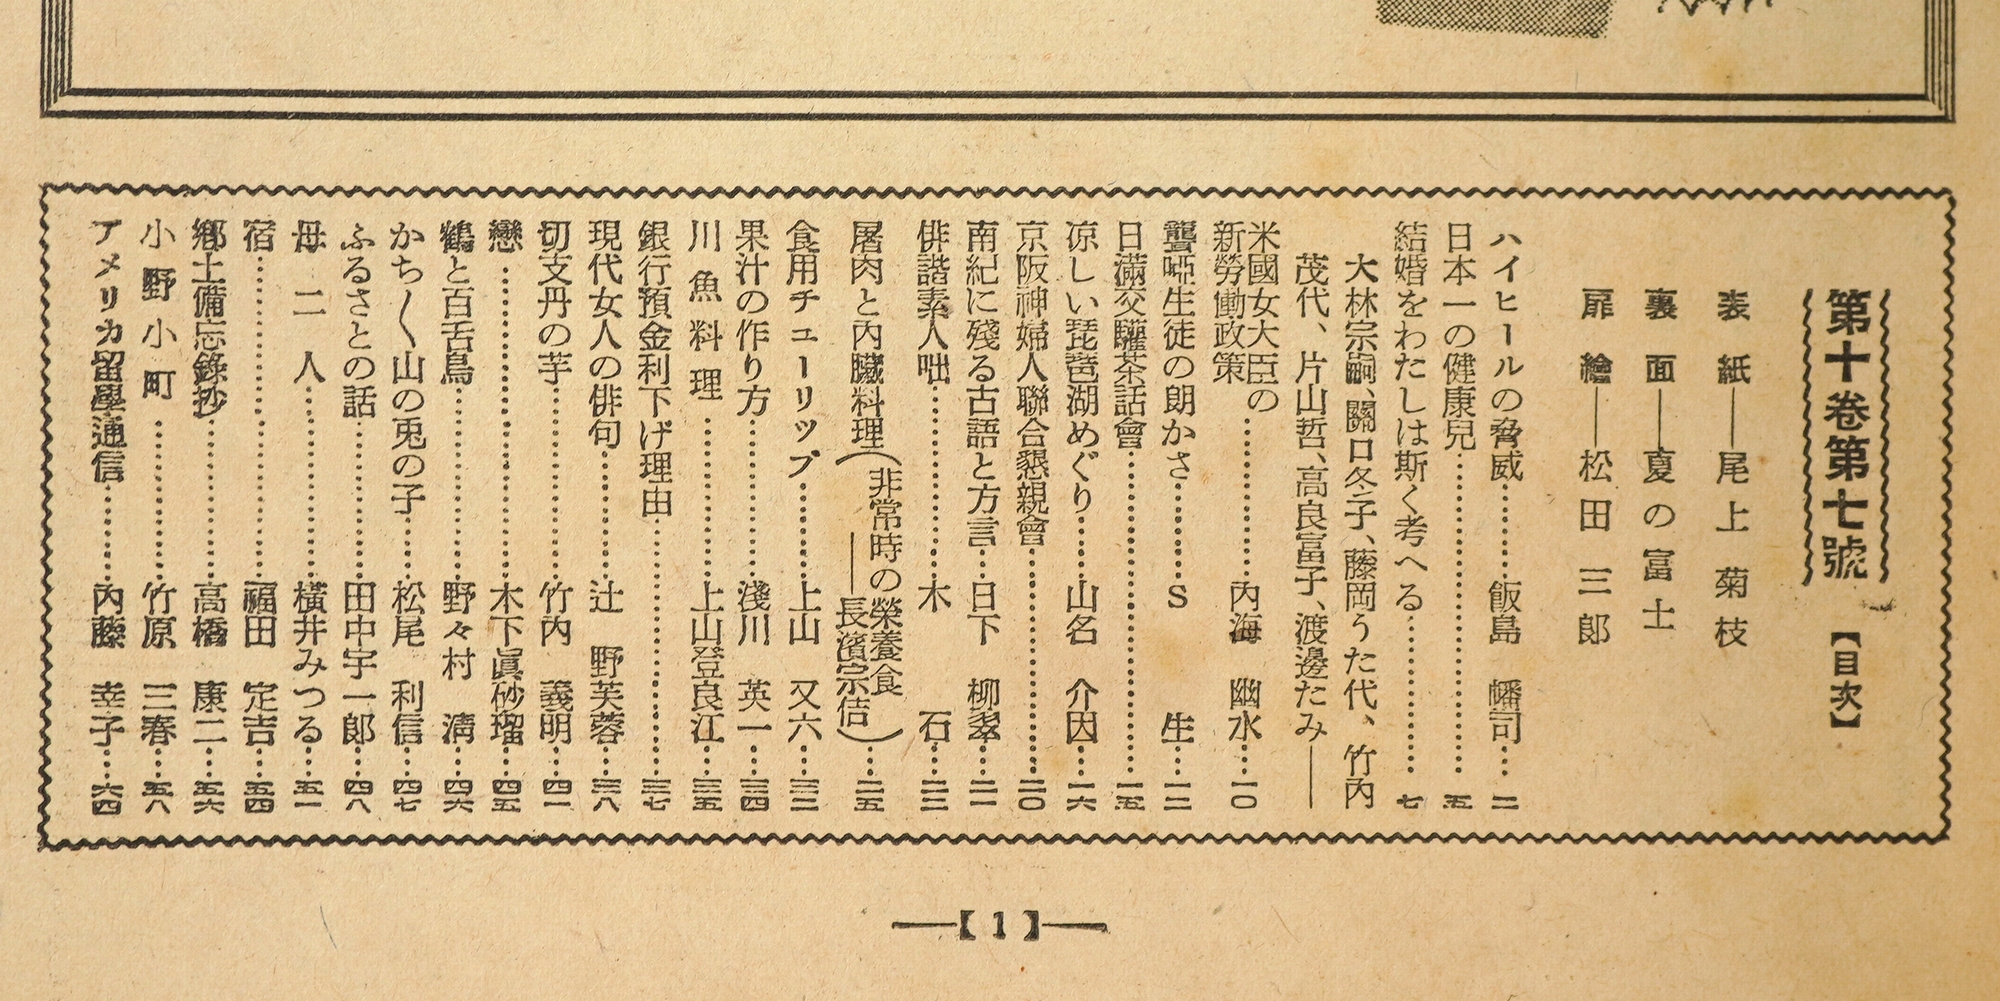 第十卷第七號【目次】
表紙――尾上菊枝
裏面――夏の富士
扉繪――松田三郎
ハイヒールの脅威………飯島幡司…二
日本一の健康兒………五
結婚をわたしは斯く考へる………七
大林宗嗣、關口冬子、藤岡うた代、竹内
茂代、片山哲、高良富子、渡邊たみ――
米國女大臣の
新勞働政策………内海幽水…一〇
聾啞生徒の朗かさ………S生…一二
日滿交驩茶話會………一五
凉しい琵琶湖めぐり………山名介因…一六
京阪神婦人聯合懇親會………二〇
南紀に殘る古語と方言…日下柳翠…二一
俳諧素人咄………木石…二三
屠肉と内臓料理(非常時の榮養食
――長濱宗佶)…二五
食用チューリップ………上山又六…三二
果汁の作り方………淺川英一…三四
川魚料理………上山登良江…三五
銀行預金利下げ理由………三七
現代女人の俳句………辻野芙蓉…三八
切支丹の芋………竹内義明…四一
戀………木下眞砂瑠…四五
鶴と百舌鳥………野々村淸…四六
かち〱山の兎の子………松尾利信…四七
ふるさとの話………田中宇一郎…四八
母二人………横井みつる…五一
宿………福田定吉…五四
郷土備忘錄抄………高橋康二…五六
小野小町………竹原三春…五八
アメリカ留學通信………内藤幸子…六四
【1】